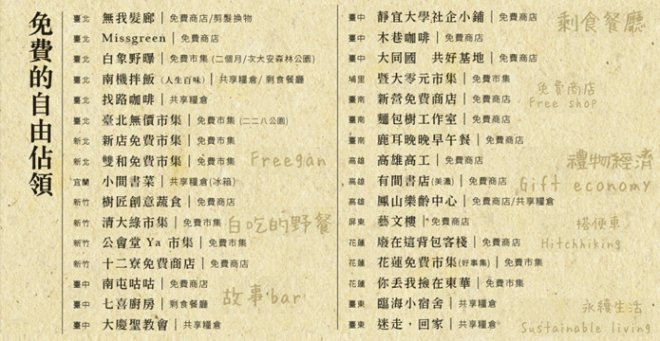 免費的自由佔領
臺北 無我髮廊｜免費商店/剪髮換物
臺北 Missgreen｜免費商店
臺北 白象野曝｜免費市集(二個月/次大安森林公園)
臺北 南機拌飯(人生百味)｜共享糧倉/剩食餐廳
臺北 找路咖啡｜共享糧倉
臺北 臺北無價市集｜免費市集(二二八公園)
新北 新店免費市集｜免費市集
新北 雙和免費市集｜免費市集
宜蘭 小間書菜｜共享糧倉(冰箱)
新竹 樹匠創意蔬食｜免費商店
新竹 清大綠市集｜免費市集
新竹 公會堂 Ya 市集｜免費市集
新竹 十二寮免費商店｜免費商店
臺中 南屯咕咕｜免費商店
臺中 七喜廚房｜剩食餐廳
臺中 大慶聖教會｜共享糧倉
Freegan
白吃的野餐
故事bar
臺中 靜宜大學社企小鋪｜免費商店
臺中 木巷咖啡｜免費商店
臺中 大同國 共好基地｜免費商店
埔里 暨大零元市集｜免費市集
臺南 新營免費商店｜免費商店
臺南 麵包樹工作室｜免費商店
臺南 鹿耳晚晚早午餐｜免費商店
高雄 高雄高工｜免費商店
高雄 有間書店(美濃)｜免費商店
高雄 鳳山樂齡中心｜免費商店/共享糧倉
屏東 藝文樓｜免費商店
花蓮 廢在這背包客棧｜免費商店
花蓮 花蓮免費市集(好事集)｜免費市集
花蓮 你丟我撿在東華｜免費市集
臺東 臨海小宿舍｜共享糧倉
臺東 迷走，回家｜共享糧倉
剩食餐廳
免費商店
Free shop
禮物經濟
Gift economy
搭便車
Hitchhiking
永續生活
Sustainable living